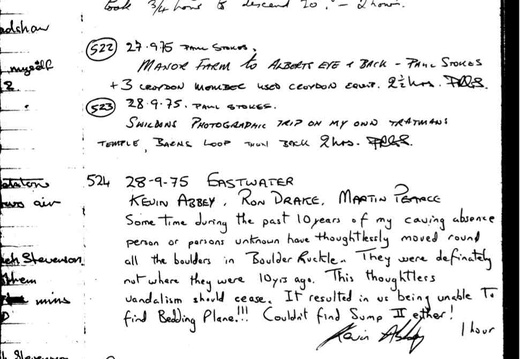 took 3/4 hours to descend 20'. - 2 hours.
adshaw
522 27.9.75 PAUL STOKES.
myself
MANOR FARM to ALBERTS EYE & BACK - PAUL STOKES
2
+ 3 CROYDON MEMBERS USED CROYDON EQUIP. 2½ hrs.
523 28.9.75. PAUL STOKES.
SWILDONS PHOTOGRAPHIC TRIP ON MY OWN TRATMANS
TEMPLE, BARNS LOOP THEN BACK 2 hrs.
524 28-9-75 EASTWATER
two air
KEVIN ABBEY, RON DRAKE, MARTIN PEARCE
Some time during the past 10 years of my caving absence
person or persons unknown have thoughtlessly moved round
Stevenson
all the boulders in Boulder Ruckle.. They were definately
them
not where they were 10 yrs ago. This thoughtless
mins
vandalism should cease. It resulted in us being unable To
find Bedding Plane!!! Couldn't find Sump II either!
Kevin Abbey 1 hour
Stevenson